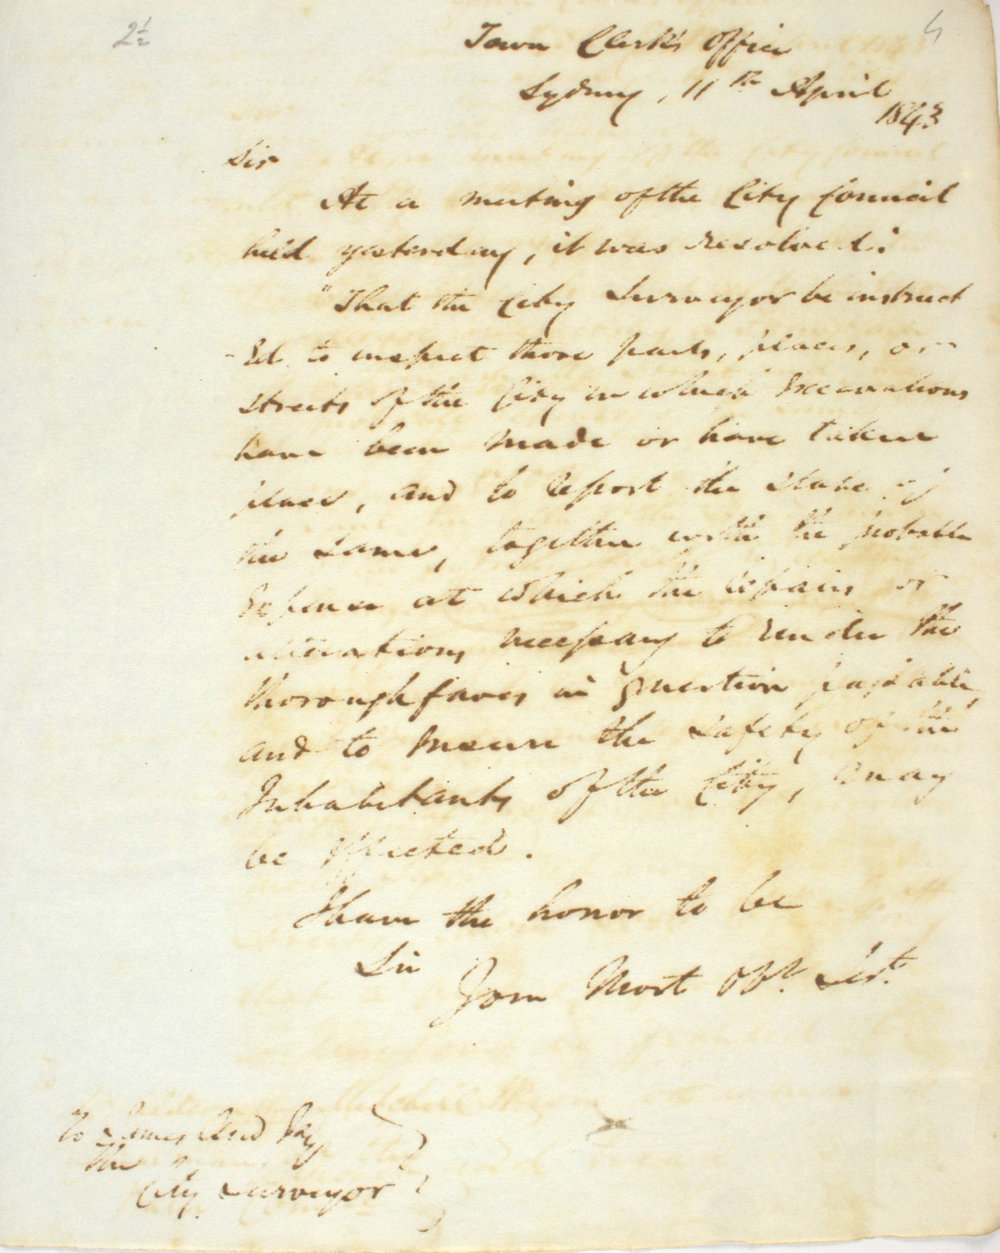 2½
4
Town Clerk's Office
Sydney, 11th April
1843
Sir
At a meeting of the City Council
held yesterday, it was resolved:
"That the City Surveyor be instruct
-ed to inspect those parts, places, or
streets of the City in which Excavations
have been made or have taken
place, and to report the state of
the same, together with the probable
Expense at which the repairs or
alterations necessary to render the
thoroughfares in question passable,
and to insure the safety of the
Inhabitants of the City, may
be effected.
I have the honor to be
Sir
Your Most Obt. Servt.
To James Esqr
the
City Surveyor